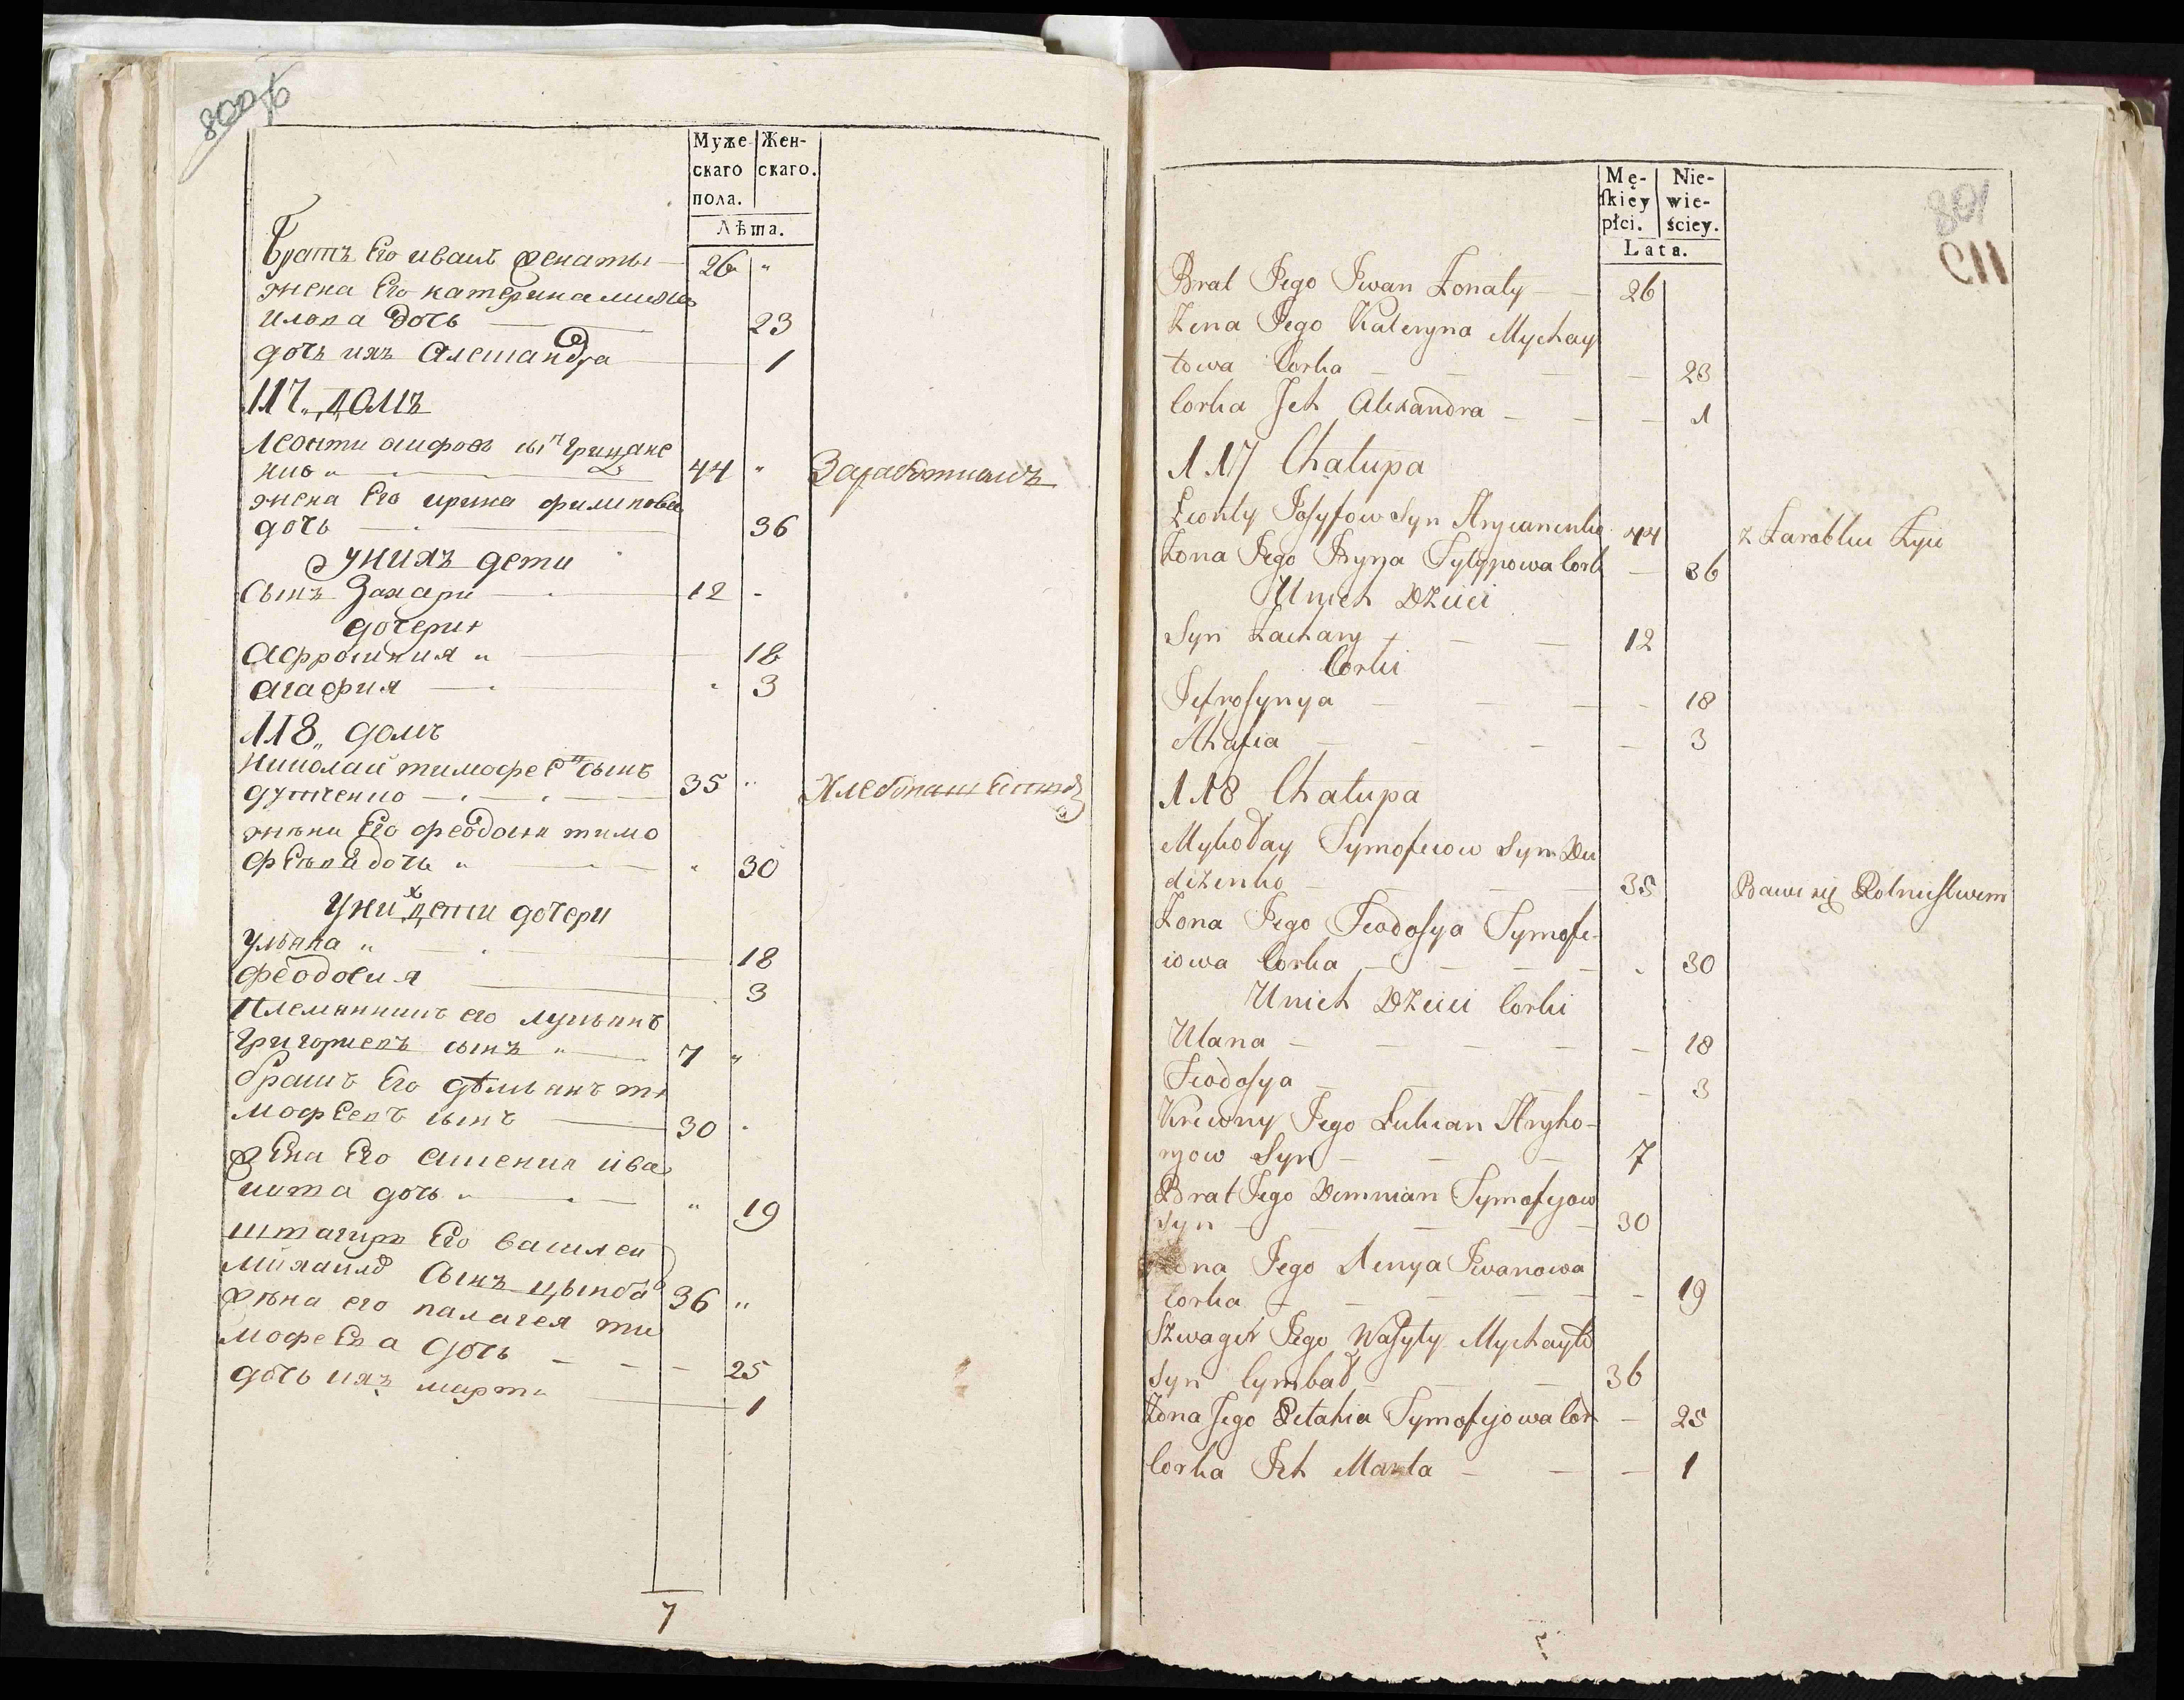 800 об
Муже-
скаго
пола.
Жен-
скаго.
Лѣта.
Братъ Его иванъ женаты 26 "
жена Его катерина михаи
илова дочь 23
дочь ихъ Алешандра 1
117 " домъ
Леонти аифовъ сы͞н Грицане
нко " 44 " Заработкамъ
жена Его ирина филипова
дочь 36
унихъ дети
Сынъ Захари 12 -
дочери
Афросиния " 18
агафия " 3
118 " домъ
Николаи тимофеевъ сынъ
дутченко 35 "
жена Его феодосия тимо
феева дочь " " 30
уних дети дочери
ульяна " 18
феодосия 3
Племянникъ его лукьянъ
Григориевъ сынъ " 7 "
братъ Его демьянъ ти
мофеевъ сынъ 30 "
жена Его ксения ива
нова дочь " " 19
швагиръ Его василеи
михаилов сынъ цымбал 36 "
жена его палагея ти
мофеева дочь 25
дочь ихъ марта 1
7
801
Mę-
ſkiéy
płci.
Nie-
wie-
ściey.
Lata.
Brat Jego Iwan Żonaty 26
Żena Jego Kateryna Mychay
łowa Corka 23
Corka Ich Alexandra 1
117 Chałupa
Leonty Josyfow Syn Hrycanenko 44 z Zarobku Żyie
Żona Jego Iryna Fylypowa Cork 36
U nich Dzieci
Syn Zachary 12
Corki
Jefrosynya 18
Ahafia 3
118 Chałupa
Mykołay Tymofeiow Syn Du
diczenko 35 Bawi się Rolnictwem
Żona Jego Feodosya Tymofe-
iowa Corka 30
U nich Dzieci Corki
Ulana 18
Feodosya 3
Krewny Jego Lukian Hryho-
ryow Syn 7
Brat Jego Demnian Tymofyow
Syn 30
Żona Jego Xenya Iwanowa
Corka 19
Szwagier Jego Wasyly Mychayło
Syn Cymbał 36
Żona Jego Pełahia Tymofyjowa Cor 25
Corka Ich Marta 1